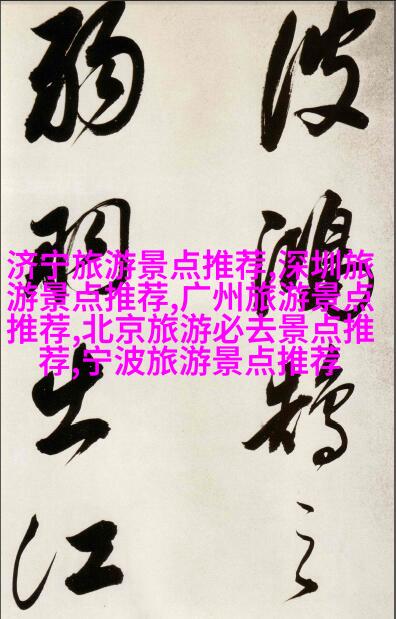 波鴻鵠之
弱羽出江
济宁旅游景点推荐,深圳旅
游景点推荐,广州旅游景点
推荐,北京旅游必去景点推
荐,宁波旅游景点推荐